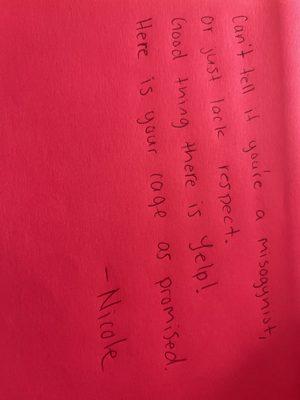 Can't tell if you're a misogynist,
or just lack respect.
Good thing there is Yelp!
Here is your rage as promised.
-Nicole